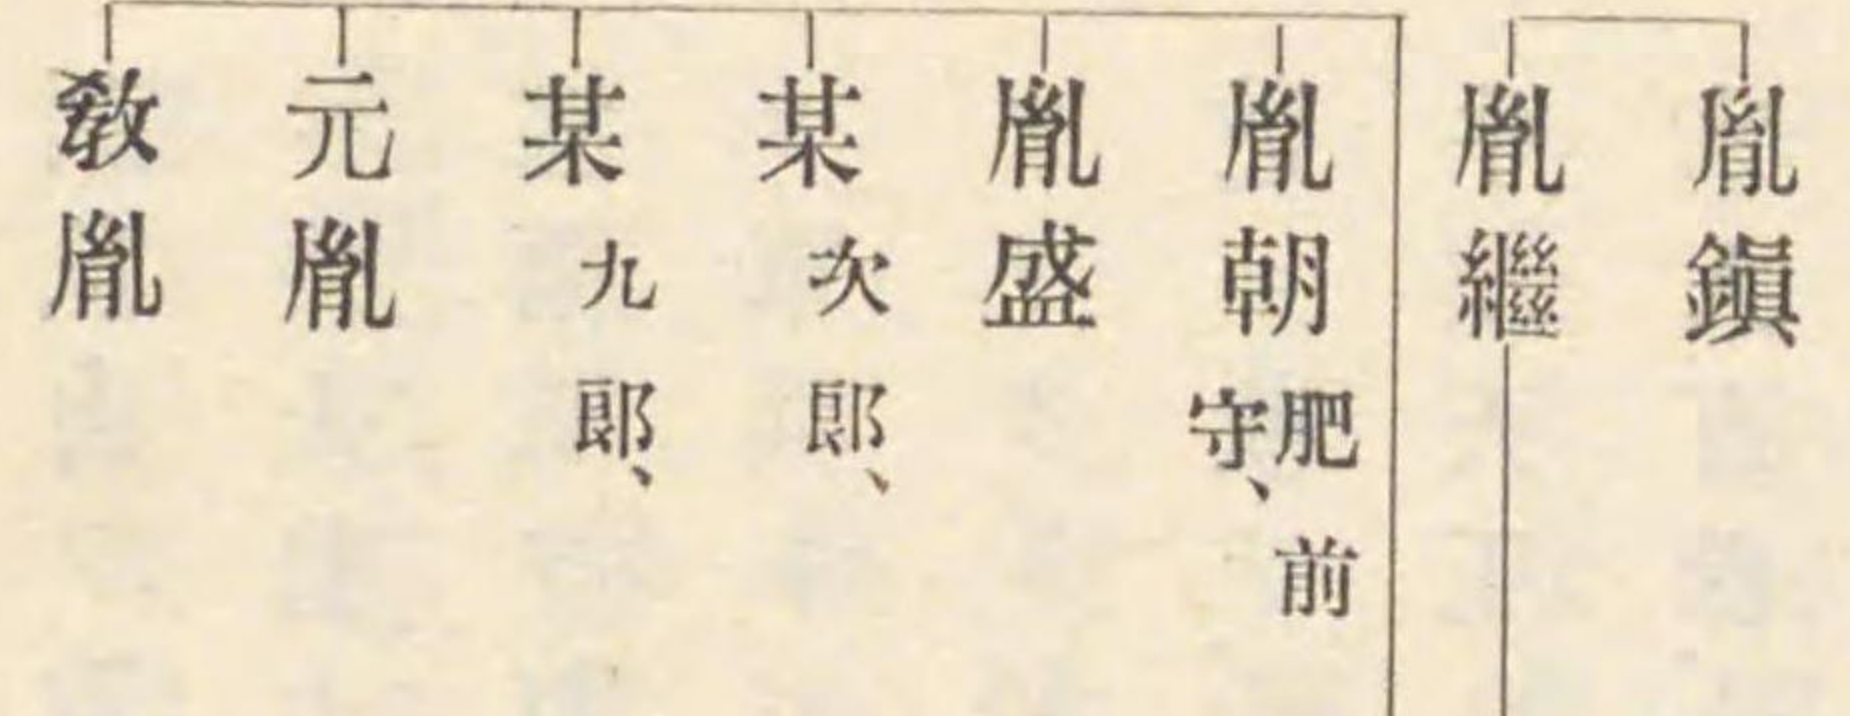 胤鎭
胤繼
胤朝 肥前守、
胤盛
某 次郎、
某 九郎、
元胤
敎胤